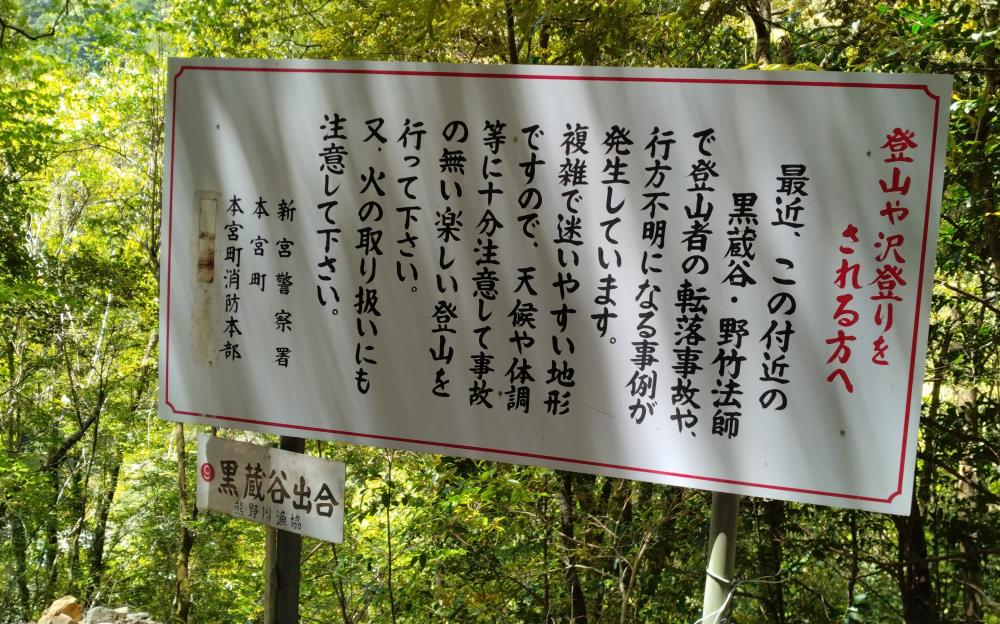 登山や沢登りを
される方へ
最近、この付近の
黒蔵谷・野竹法師
で登山者の転落事故や、
行方不明になる事例が
発生しています。
複雑で迷いやすい地形
ですので、天候や体調
等に十分注意して事故
の無い楽しい登山を
行って下さい。
又、火の取り扱いにも
注意して下さい。
新宮警察署
本宮町
本宮町消防本部
9 黒蔵谷出合
熊野川漁協